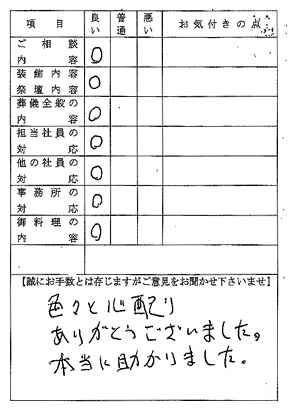 項目 良い 普通 悪い お気付きの点
ご相談内容 ○
装飾内容祭壇内容 ○
葬儀全般の内容 ○
担当社員の対応 ○
他の社員の対応 ○
事務所の対応 ○
御料理の内容 ○
【誠にお手数とは存じますがご意見をお聞かせ下さいませ】
色々と心配り
ありがとうございました。
本当に助かりました。